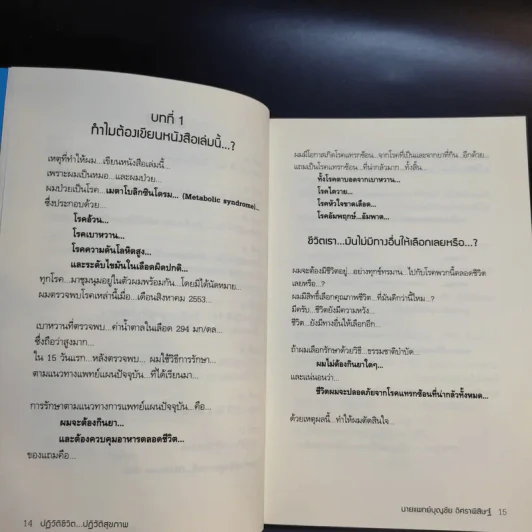 บทที่ 1
ทำไมต้องเขียนหนังสือเล่มนี้...?
เหตุที่ทำให้ผม...เขียนหนังสือเล่มนี้...
เพราะผมเป็นหมอ...และผมป่วย...
ผมป่วยเป็นโรค...เมตาโบลิกซินโดรม... (Metabolic syndrome)...
ซึ่งประกอบด้วย...
โรคอ้วน...
โรคเบาหวาน...
โรคความดันโลหิตสูง...
และระดับไขมันในเลือดผิดปกติ...
ทุกโรค...มาชุมนุมอยู่ในตัวผมพร้อมกัน...โดยมิได้นัดหมาย...
ผมตรวจพบโรคเหล่านี้เมื่อ...เดือนสิงหาคม 2553...
เบาหวานที่ตรวจพบ...ค่าน้ำตาลในเลือด 294 มก/ดล...
ซึ่งถือว่าสูงมาก...
ใน 15 วันแรก...หลังตรวจพบ... ผมใช้วิธีการรักษา...
ตามแนวทางแพทย์แผนปัจจุบัน...ที่ได้เรียนมา...
การรักษาตามแนวทางการแพทย์แผนปัจจุบัน...คือ...
ผมจะต้องกินยา...
และต้องควบคุมอาหารตลอดชีวิต...
ของแถมคือ...
14 ปฏิวัติชีวิต...ปฏิวัติสุขภาพ
ผมมีโอกาสเกิดโรคแทรกซ้อน...จากโรคที่เป็นและจากยาที่กิน...อีกด้วย...
แถมเป็นโรคแทรกซ้อน...ที่น่ากลัวมาก...ทั้งสิ้น...
ทั้งโรคตาบอดจากเบาหวาน...
โรคไตวาย...
โรคหัวใจขาดเลือด...
โรคอัมพฤกษ์...อัมพาต...
ชีวิตเรา...มันไม่มีทางอื่นให้เลือกเลยหรือ...?
ผมจะต้องมีชีวิตอยู่...อย่างทุกข์ทรมาน...ไปกับโรคพวกนี้ตลอดชีวิต
เลยหรือ?
ผมมีสิทธิ์เลือกคุณภาพชีวิต...ที่มันดีกว่านี้ไหม...?
มีครับ...ชีวิตยังมีความหวัง...
ชีวิต...ยังมีทางอื่นให้เลือกอีก...
ถ้าผมเลือกรักษาด้วยวิธี...ธรรมชาติบำบัด...
ผมไม่ต้องกินยาใดๆ...
และแน่นอนว่า...
ชีวิตผมจะปลอดภัยจากโรคแทรกซ้อนที่น่ากลัวทั้งหมด...
ด้วยเหตุผลนี้...ทำให้ผมตัดสินใจ...
นายแพทย์บุญชัย อิศราพิสิษฐ์ 15